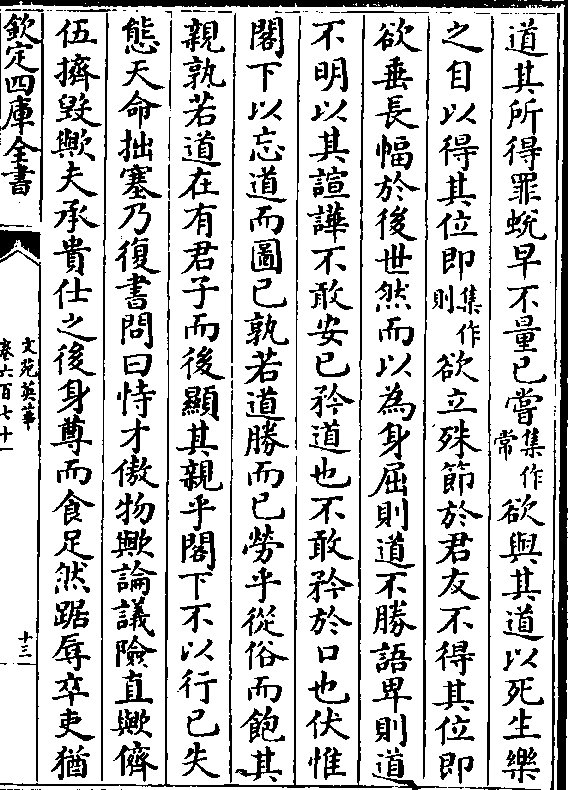 道其所得罪蛻早不量已嘗集作常欲與其道以死生樂
之目以得其位即集作則欲立殊節於君友不得其位即
欲垂長幅於後世然而以為身屈則道不勝語卑則道
不明以其諠譁不敢安已矜道也不敢矜於口也伏惟
閣下以忘道而圖已孰若道勝而已勞乎從俗而飽其
親孰若道在有君子而後顯其親乎閣下不以行已失
態天命拙塞乃復書問曰恃才傲物歟論議險直歟儕
伍擠毀歟夫承貴仕之後身尊而食足然踞辱卒吏猶
欽定四庫全書
文苑英華
卷六百七十一
十三